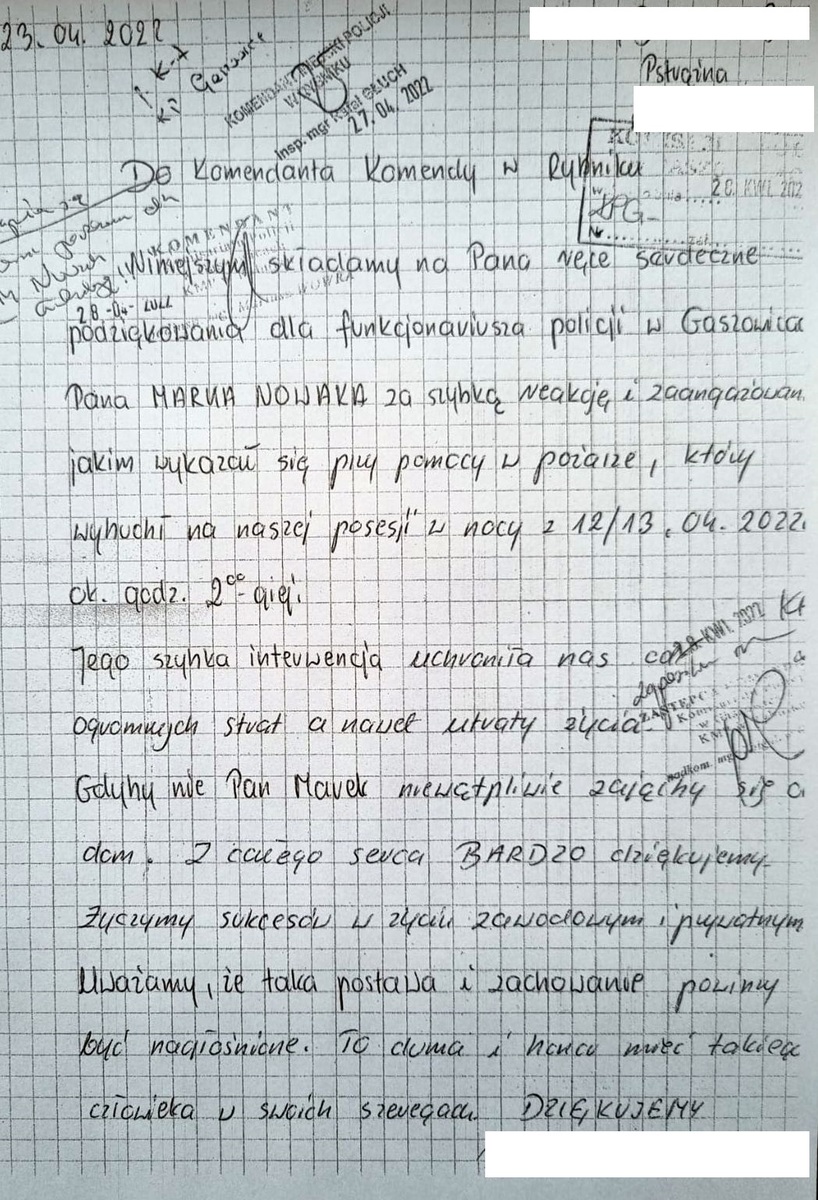 23.04.2022
Pstrążna
1. K-t
KP Gaszowice
KOMENDANT MIEJSKI POLICJI
W RYBNIKU
insp. mgr Rafał GŁUCH
27.04.2022
28 KWI. 202
Do Komendanta Komendy w Rybniku
KOMENDANT
28-04-
Niniejszym składamy na Pana ręce serdeczne
podziękowania dla funkcjonariusza policji w Gaszowica
Pana MARKA NOWAKA za szybką reakcję i zaangażowan
jakim wykazał się przy pomocy w pożarze, który
wybuchł na naszej posesji w nocy z 12/13.04.2022
ok. godz. 2⁰⁰-giej.
Jego szybka interwencja uchroniła nas
28 KWI. 2022
ogromnych strat a nawet utraty życia.
ZASTĘPCA
Gdyby nie Pan Marek niewątpliwie zająłby się
nadkom. mg
dom. Z całego serca BARDZO dziękujemy.
Życzymy sukcesów w życiu zawodowym i prywatnym
Uważamy, że taka postawa i zachowanie powinny
być nagłośnione. To duma i honor mieć takieg
człowieka w swoich szeregach. DZIĘKUJEMY